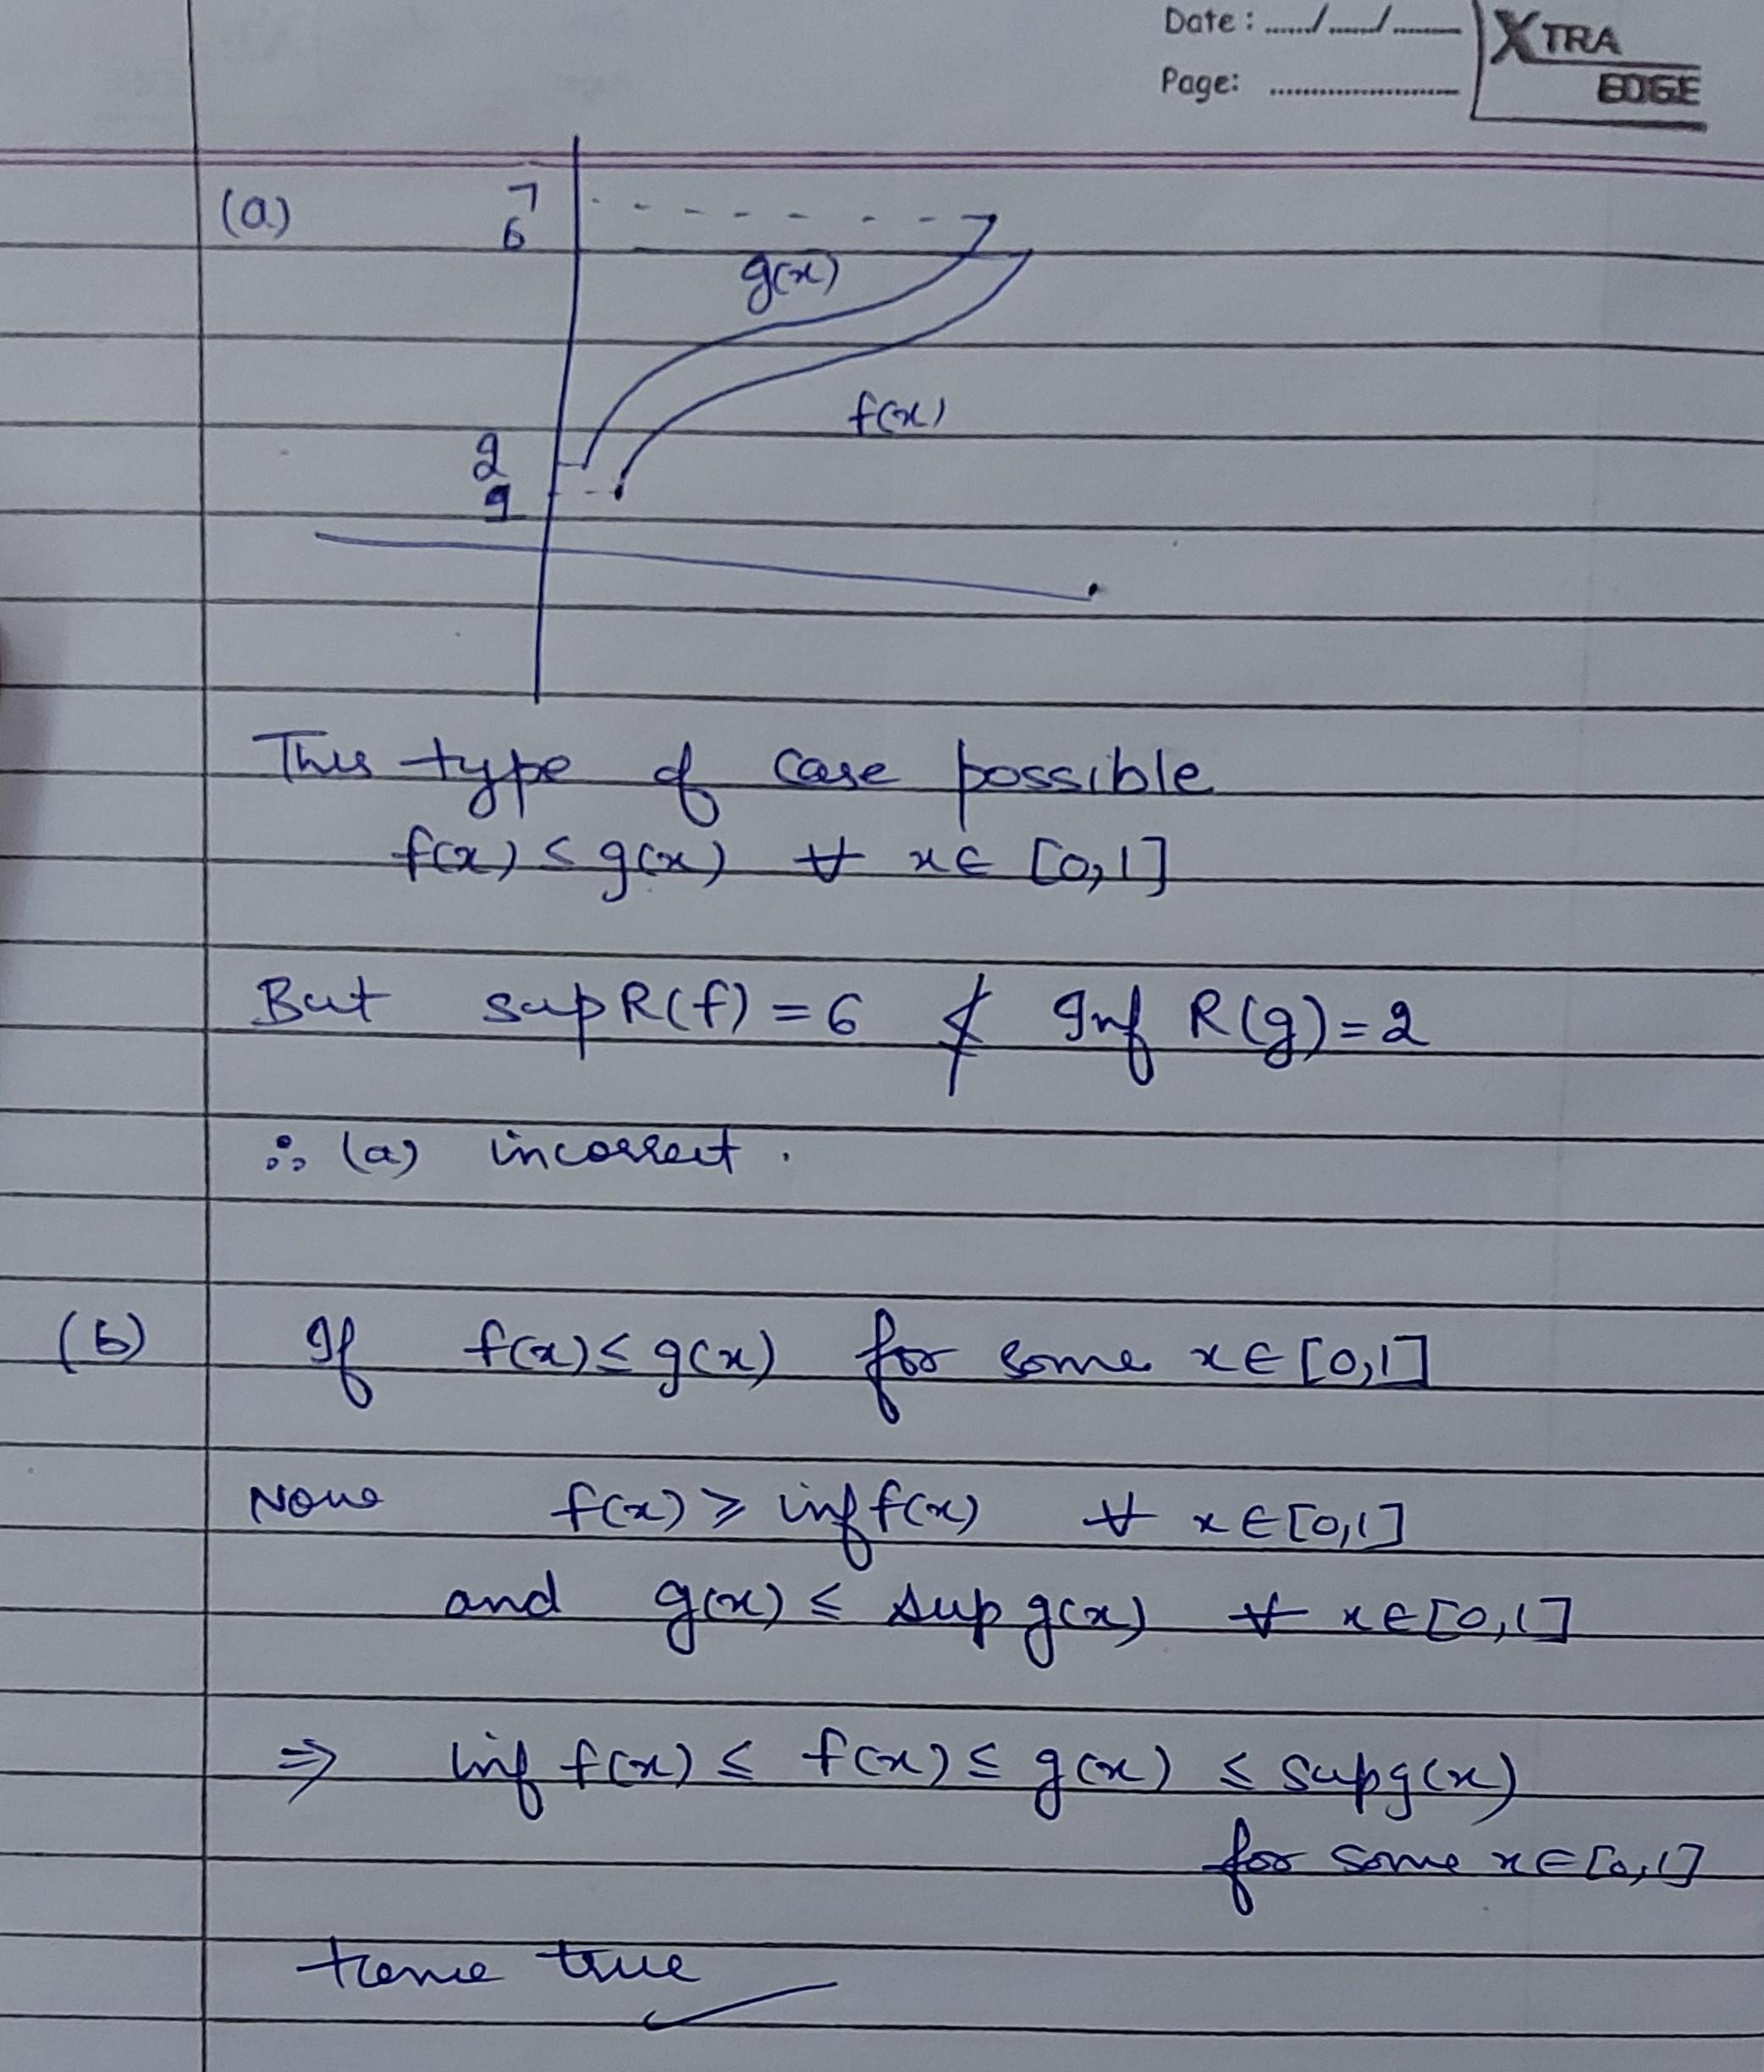 Date : ....../....../..........
Page: ..........................
XTRA
EDGE
(a)
7
6
g(x)
f(x)
2
1
This type of case possible
f(x) ≤ g(x) ∀ x ∈ [0,1]
But sup R(f) = 6 ≰ Inf R(g) = 2
∴ (a) incorrect.
(b) If f(x) ≤ g(x) for some x ∈ [0,1]
Now f(x) ≥ inf f(x) ∀ x ∈ [0,1]
and g(x) ≤ sup g(x) ∀ x ∈ [0,1]
⇒ inf f(x) ≤ f(x) ≤ g(x) ≤ sup g(x)
for some x ∈ [0,1]
Hence true